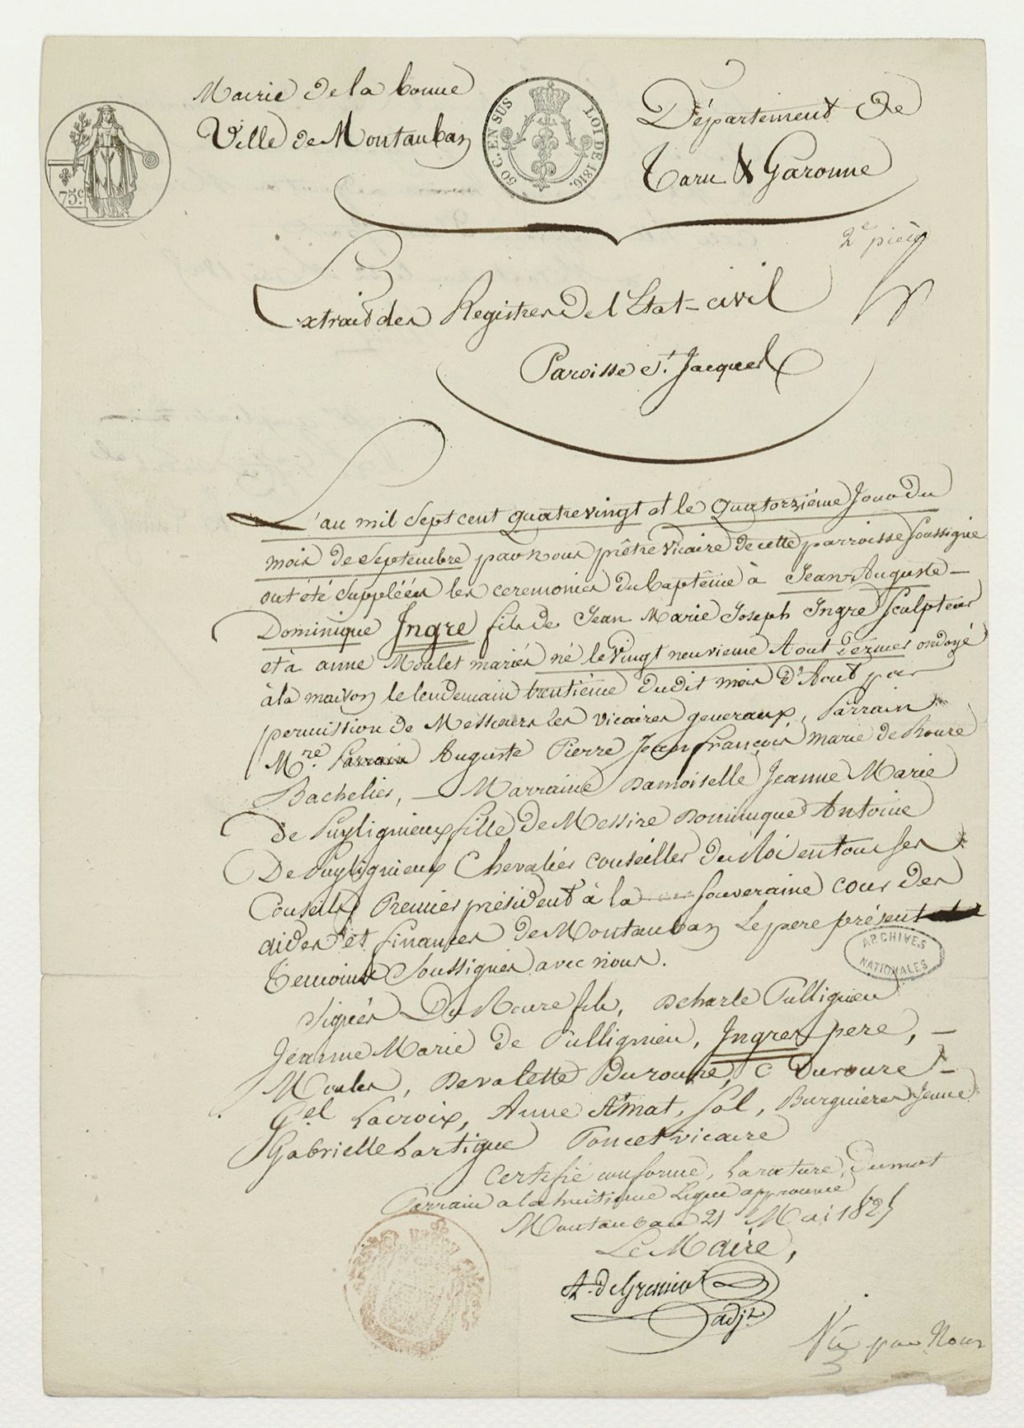 Mairie de la bonne
Ville de Montauban
75c
50 C. EN SUS
LOI DE 1816.
Département de
Tarn & Garonne
2e pièce
Extrait des Registres de l'Etat-civil
Paroisse St. Jacques
L'an mil sept cent quatrevingt et le quatorzième Jour du
mois de septembre par nous prêtre vicaire de cette parroisse soussigné
ont été suppléées les ceremonies du baptême à Jean-Auguste-
Dominique Ingre fils de Jean Marie Joseph Ingre sculpteur
et à anne Moulet mariés né le vingt neuvieme Aout dernier ondoyé
à la maison le lendemain trentième dudit mois d'Août par
permission de Messieurs les vicaires generaux, Parrain
Mre. Parrain Auguste Pierre Jean françois marie de Roure
Bachelier, — Marraine Damoiselle Jeanne Marie
De Puylignieux fille de Messire Dominique Antoine
De Puylignieux Chevalier conseiller du Roi en tous ses
Conseils Premier président à la souveraine cour des
aides et finances de Montauban Le pere présent
Temoins Soussignés avec nous.
ARCHIVES
NATIONALES
Signés Du Roure fils, Decharle Pullignieu
Jeanne Marie de Pullignieu, Ingres pere, —
Moulet, Devalette Duroure, C Duroure —
Gel Lacroix, Anne Amat, Sol, Burguieres Jeune
Gabrielle Lartigue Poncet vicaire
Certifié conforme, La rature du mot
Parrain a la huitieme Ligne approuvée
Montauban 21 Mai 1825
Le Maire,
A. de Gremier
adjt
Vu par Nous